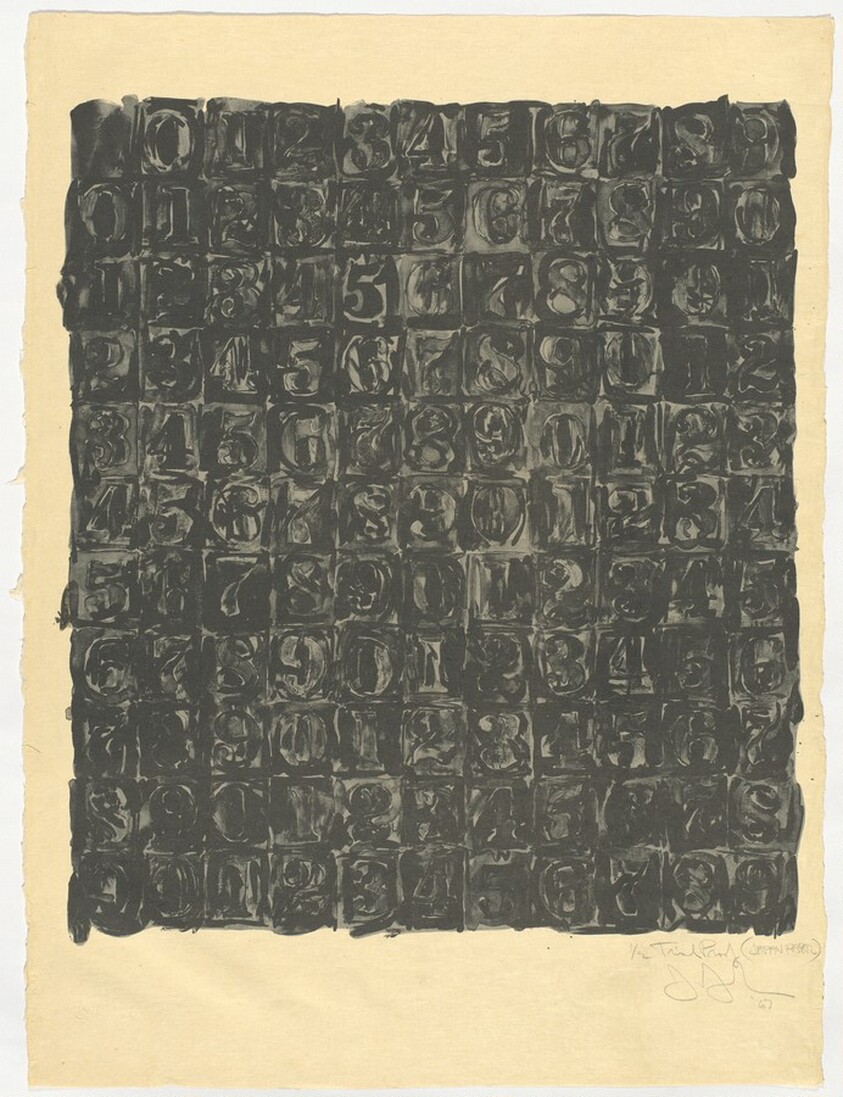 0 1 2 3 4 5 6 7 8 9
0 1 2 3 4 5 6 7 8 9 0
1 2 3 4 5 6 7 8 9 0 1
2 3 4 5 6 7 8 9 0 1 2
3 4 5 6 7 8 9 0 1 2 3
4 5 6 7 8 9 0 1 2 3 4
5 6 7 8 9 0 1 2 3 4 5
6 7 8 9 0 1 2 3 4 5 6
7 8 9 0 1 2 3 4 5 6 7
8 9 0 1 2 3 4 5 6 7 8
9 0 1 2 3 4 5 6 7 8 9
Trial Proof (JAPAN PAPER)
'67